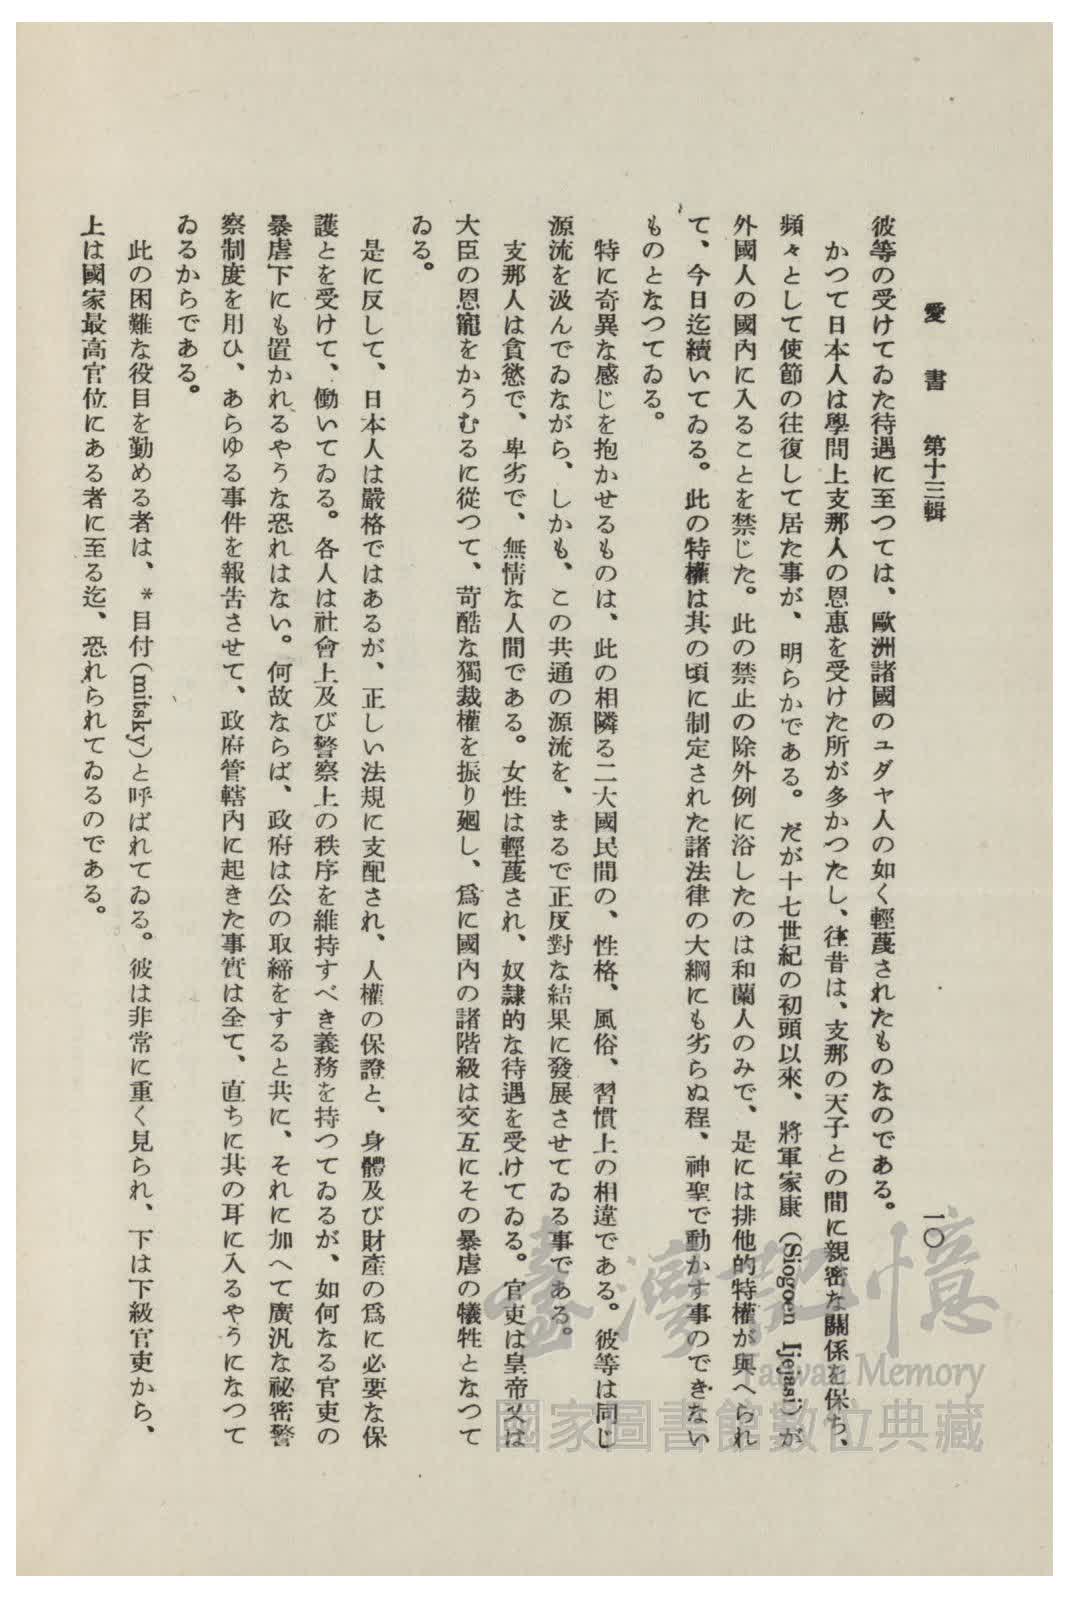 愛書 第十三輯
一〇
彼等の受けてゐた待遇に至つては、歐洲諸國のユダヤ人の如く輕蔑されたものなのである。
かつて日本人は學問上支那人の恩惠を受けた所が多かつたし、往昔は、支那の天子との間に親密な關係を保ち、
頻々として使節の往復して居た事が、明らかである。だが十七世紀の初頭以來、將軍家康（Siogoen Ijejasi）が
外國人の國內に入ることを禁じた。此の禁止の除外例に浴したのは和蘭人のみで、是には排他的特權が與へられ
て、今日迄續いてゐる。此の特權は其の頃に制定された諸法律の大綱にも劣らぬ程、神聖で動かす事のできない
ものとなつてゐる。
特に奇異な感じを抱かせるものは、此の相隣る二大國民間の、性格、風俗、習慣上の相違である。彼等は同じ
源流を汲んでゐながら、しかも、この共通の源流を、まるで正反對な結果に發展させてゐる事である。
支那人は貪慾で、卑劣で、無情な人間である。女性は輕蔑され、奴隷的な待遇を受けてゐる。官吏は皇帝又は
大臣の恩寵をかうむるに從つて、苛酷な獨裁權を振り廻し、爲に國內の諸階級は交互にその暴虐の犧牲となつて
ゐる。
是に反して、日本人は嚴格ではあるが、正しい法規に支配され、人權の保證と、身體及び財產の爲に必要な保
護とを受けて、働いてゐる。各人は社會上及び警察上の秩序を維持すべき義務を持つてゐるが、如何なる官吏の
暴虐下にも置かれるやうな恐れはない。何故ならば、政府は公の取締をすると共に、それに加へて廣汎な祕密警
察制度を用ひ、あらゆる事件を報告させて、政府管轄內に起きた事實は全て、直ちに其の耳に入るやうになつて
ゐるからである。
此の困難な役目を勤める者は、*目付（mitsky）と呼ばれてゐる。彼は非常に重く見られ、下は下級官吏から、
上は國家最高官位にある者に至る迄、恐れられてゐるのである。
臺灣記憶
Taiwan Memory
國家圖書館數位典藏